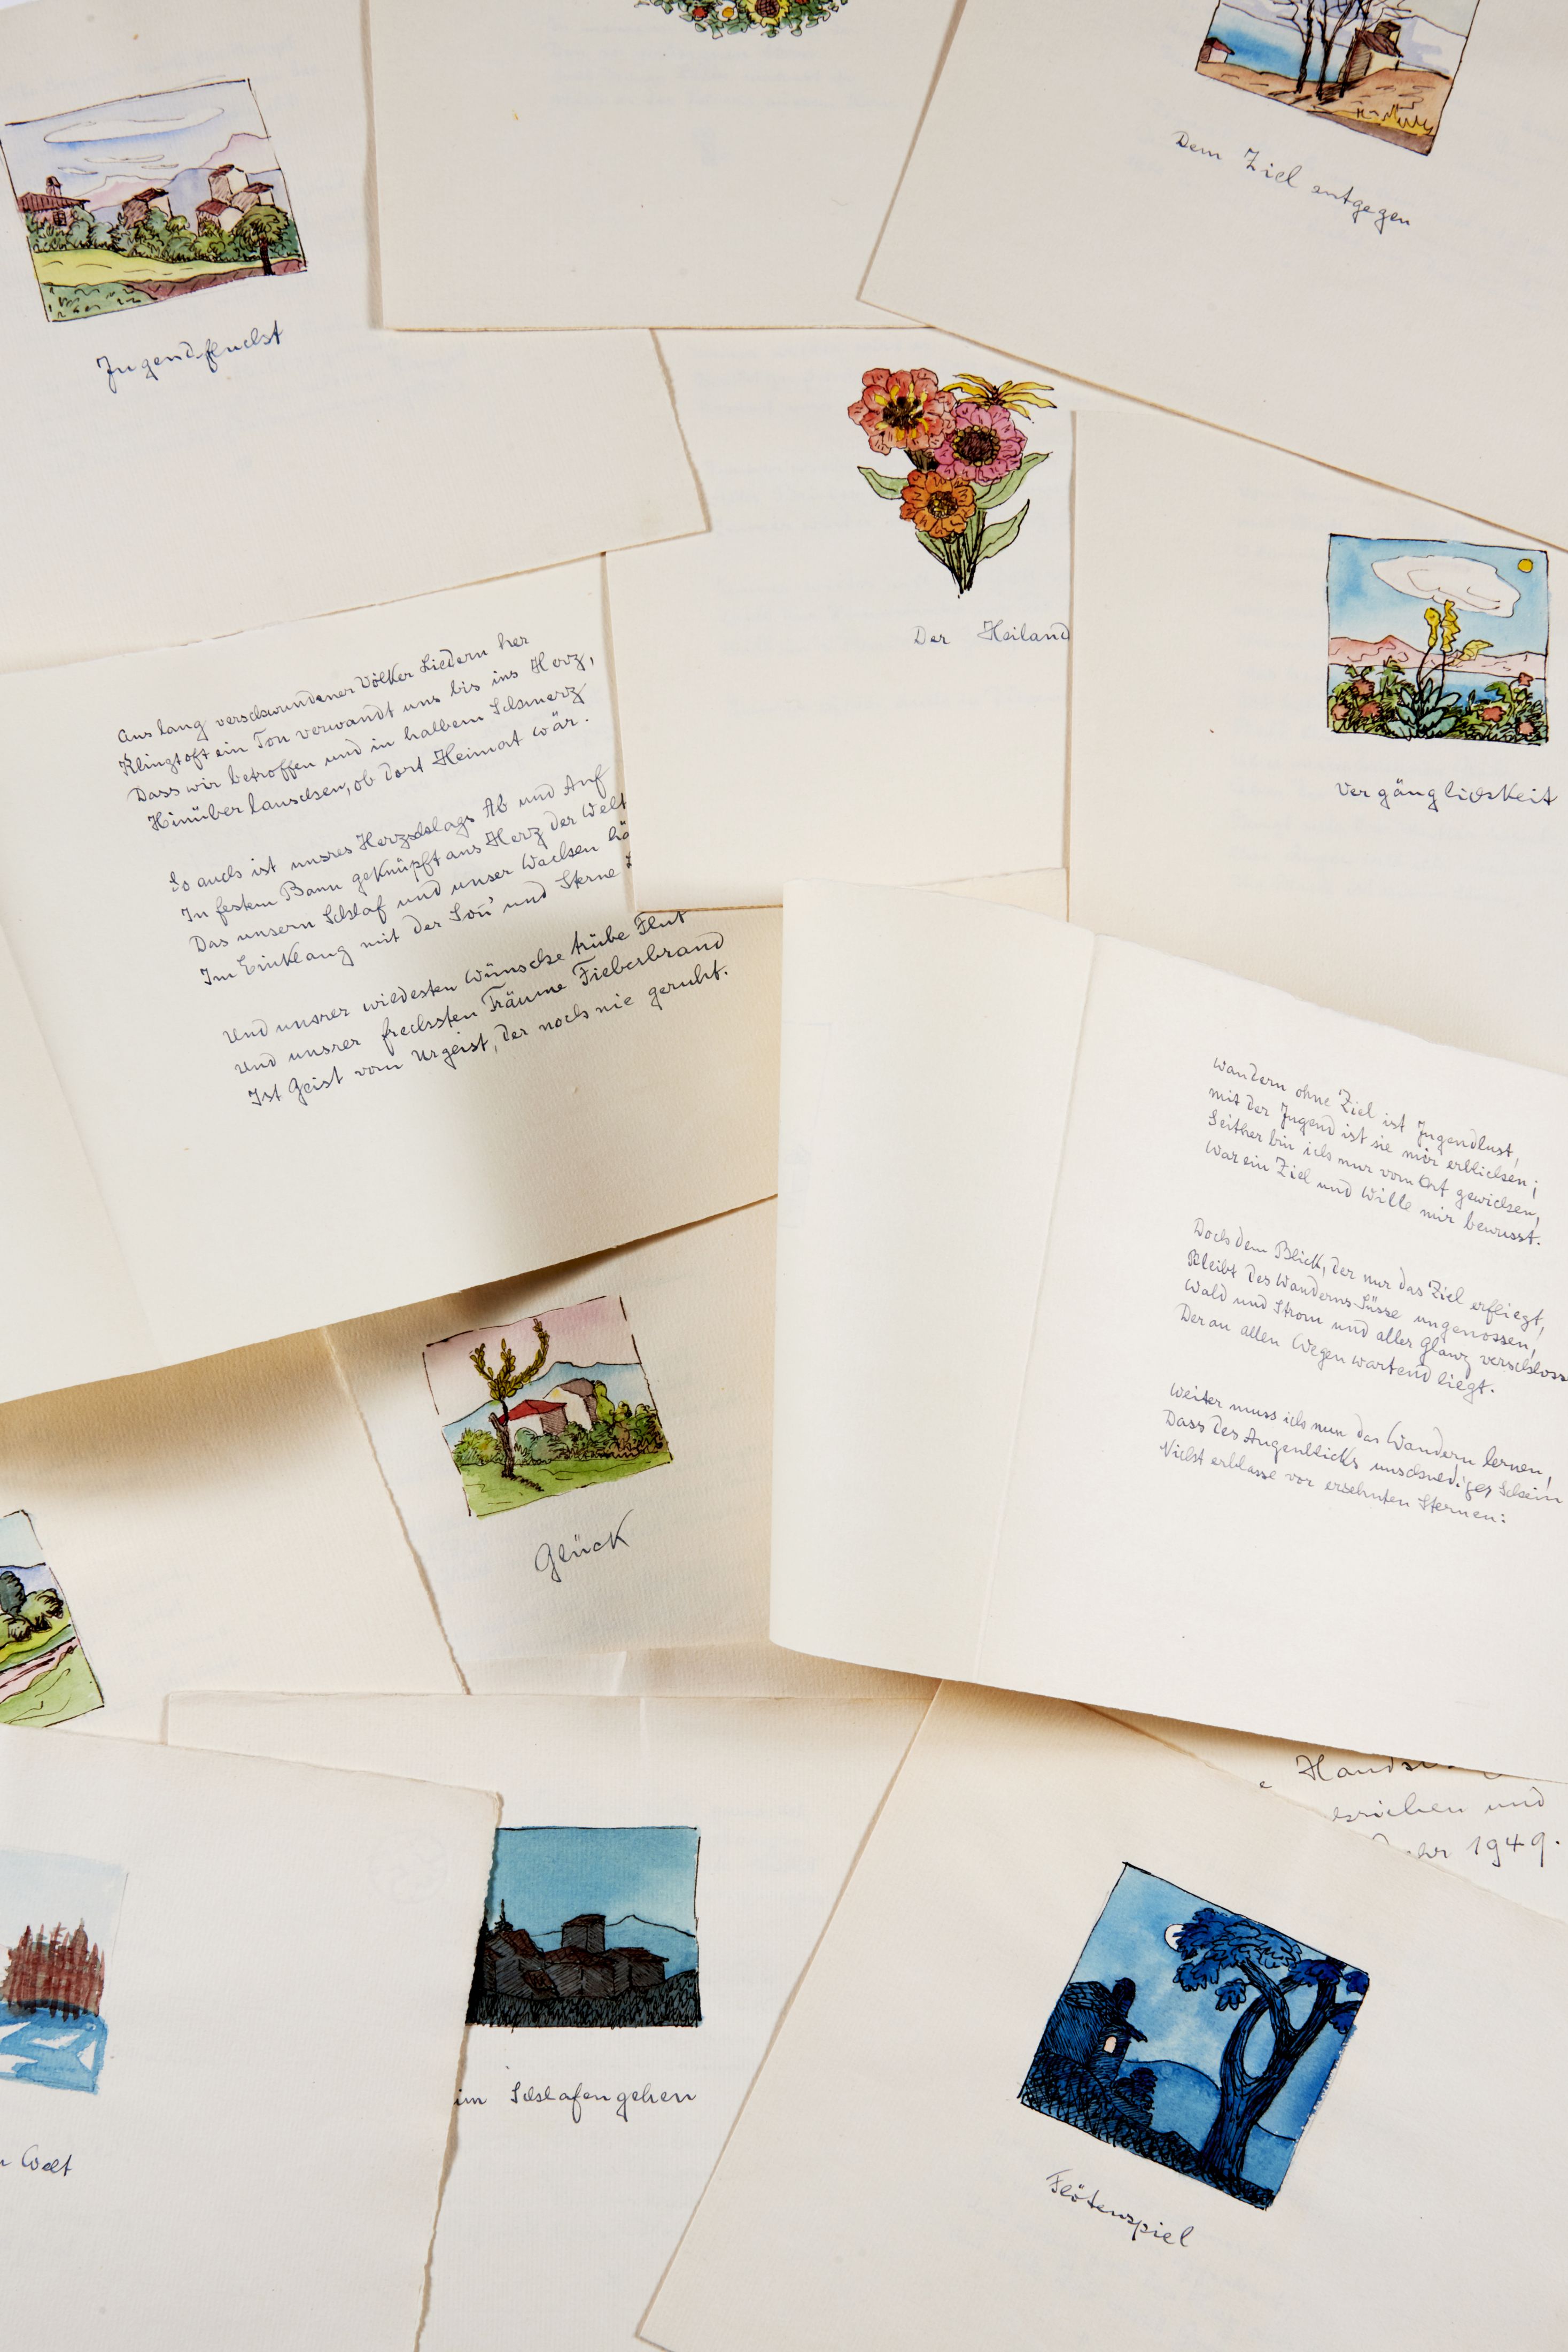 Dem Ziel entgegen
Jugendflucht
Der Heiland
Vergänglichkeit
Aus lang verschwundener Völker Liedern her
Klingt oft ein Ton verwandt uns bis ins Herz,
Dass wir betroffen und in halbem Schmerz
Hinüber lauschen, ob dort Heimat wär.
So auch ist unsres Herzschlags Ab und Auf
In festem Bann geknüpft ans Herz der Welt
Das unsern Schlaf und unser Wachsen hä
Im Einklang mit der Soñ' und Sterne
Und unsrer wildesten Wünsche trübe Flut
Und unsrer frechsten Träume Fieberbrand
Ist Geist vom Urgeist, der noch nie geruht.
Wandern ohne Ziel ist Jugendlust,
mit der Jugend ist sie mir erblichen;
Seither bin ich nur vom Ort gewichen,
War ein Ziel und Wille mir bewusst.
Doch dem Blick, der nur das Ziel erfliegt,
Bleibt des Wanderns Süsse ungenossen,
Wald und Strom und aller Glanz verschloss
Der an allen Wegen wartend liegt.
Weiter muss ich nun das Wandern lernen,
Dass des Augenblicks unschuldiger Schein
Nicht erblasse vor ersehnten Sternen:
Glück
und
1949.
im Schlafengehen
Welt
Flötenspiel